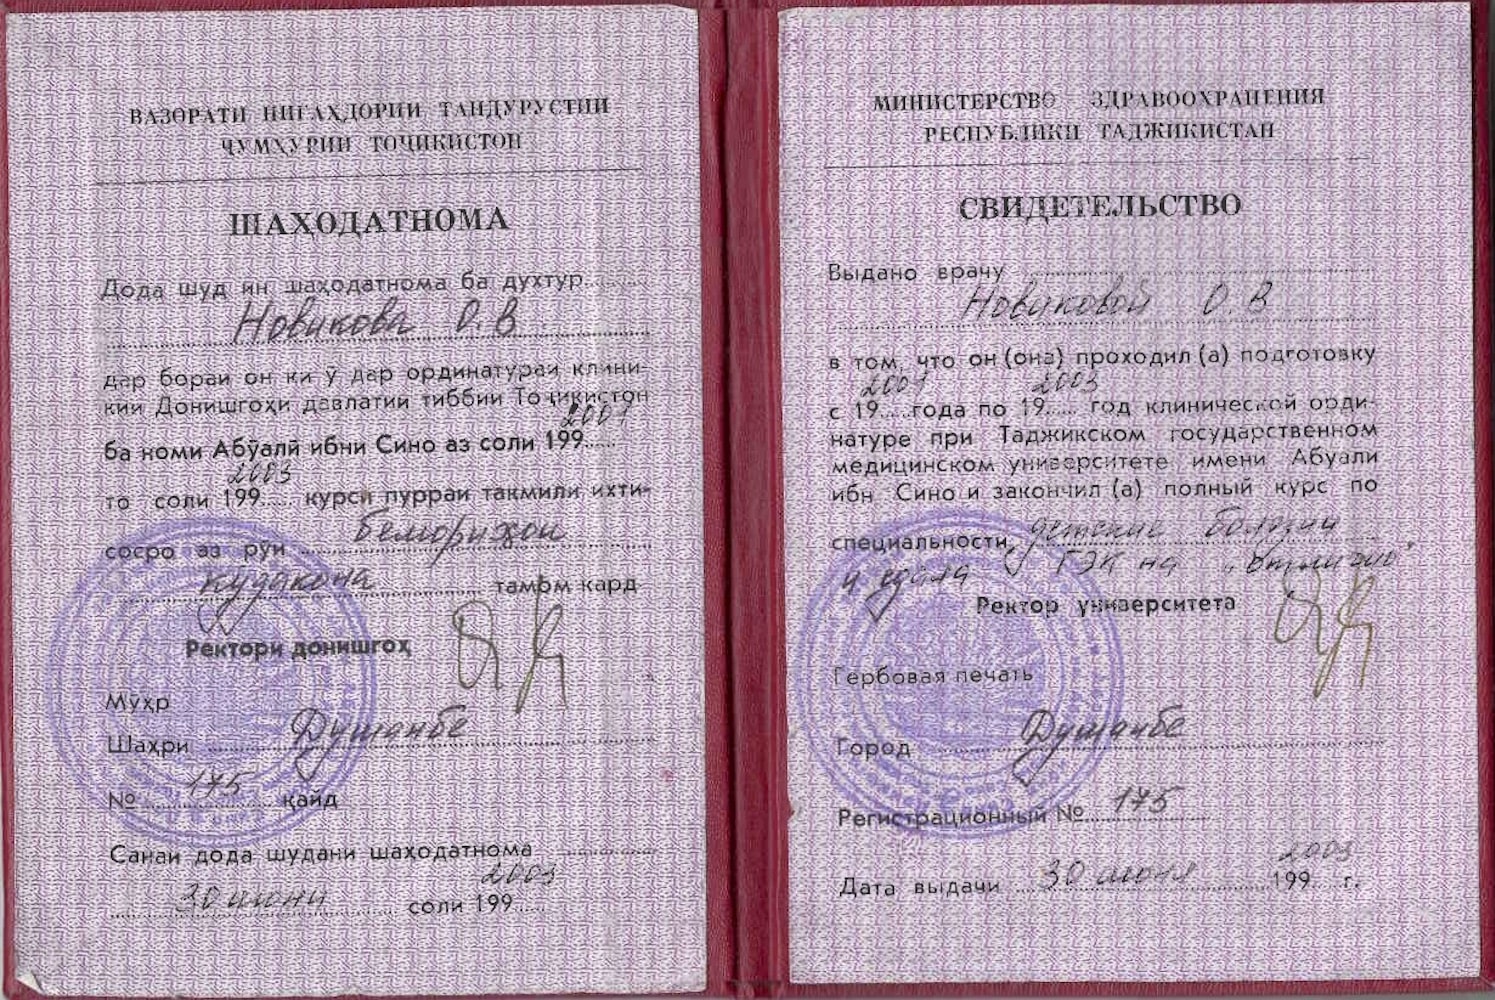 ВАЗОРАТИ НИГАҲДОРИИ ТАНДУРУСТИИ
ҶУМҲУРИИ ТОҶИКИСТОН
ШАҲОДАТНОМА
Дода шуд ин шаҳодатнома ба духтур
Новикова О.В
дар бораи он ки ӯ дар ординатураи клини-
кии Донишгоҳи давлатии тиббии Тоҷикистон
2001
ба номи Абӯалӣ ибни Сино аз соли 199
2003
то соли 199 курси пурраи такмили ихти-
сосро аз рӯи бемориҳои
кудакона тамом кард
Ректори донишгоҳ
Мӯҳр
Шаҳри Душанбе
№ 175 қайд
Санаи дода шудани шаҳодатнома
2003
30 июни соли 199
МИНИСТЕРСТВО ЗДРАВООХРАНЕНИЯ
РЕСПУБЛИКИ ТАДЖИКИСТАН
СВИДЕТЕЛЬСТВО
Выдано врачу
Новиковой О.В
в том, что он (она) проходил (а) подготовку
2001 2003
с 19 года по 19 год клинической орди-
натуре при Таджикском государственном
медицинском университете имени Абуали
ибн Сино и закончил (а) полный курс по
специальности детские болезни
и сдала ГЭК на "отлично"
Ректор университета
Гербовая печать
Город Душанбе
Регистрационный № 175
2003
Дата выдачи 30 июня 199 г.